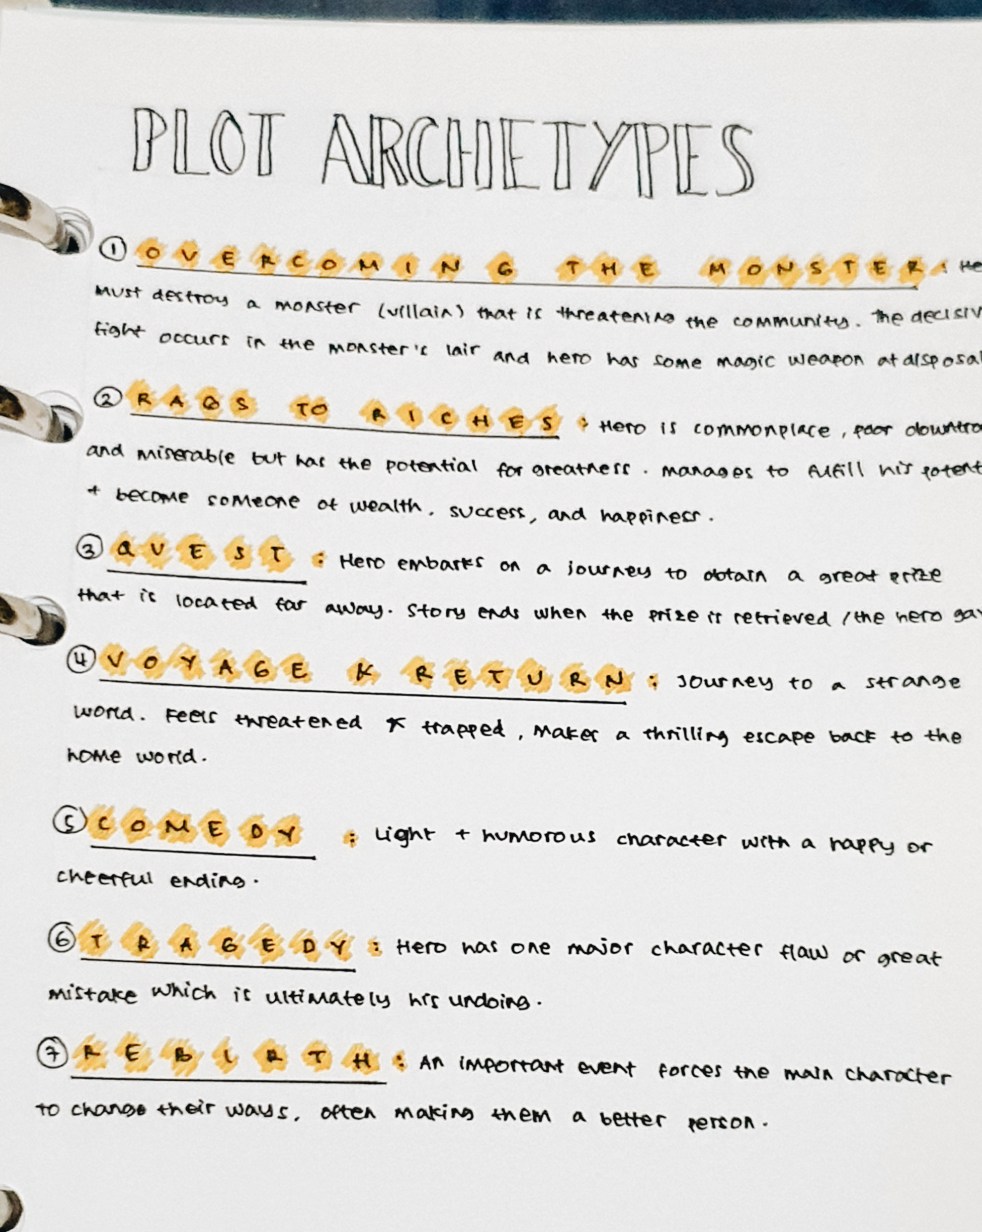 PLOT ARCHETYPES
① OVERCOMING THE MONSTER : He
must destroy a monster (villain) that is threatening the community. The decisiv
fight occurs in the monster's lair and hero has some magic weapon at disposal
② RAGS TO RICHES : Hero is commonplace, poor downtro
and miserable but has the potential for greatness. manages to fulfill his potent
+ become someone of wealth, success, and happiness.
③ QUEST : Hero embarks on a journey to obtain a great prize
that is located far away. Story ends when the prize is retrieved / the hero ga
④ VOYAGE & RETURN : Journey to a strange
world. Feels threatened & trapped, makes a thrilling escape back to the
home world.
⑤ COMEDY : Light + humorous character with a happy or
cheerful ending.
⑥ TRAGEDY : Hero has one major character flaw or great
mistake which is ultimately his undoing.
⑦ REBIRTH : An important event forces the main character
to change their ways, often making them a better person.